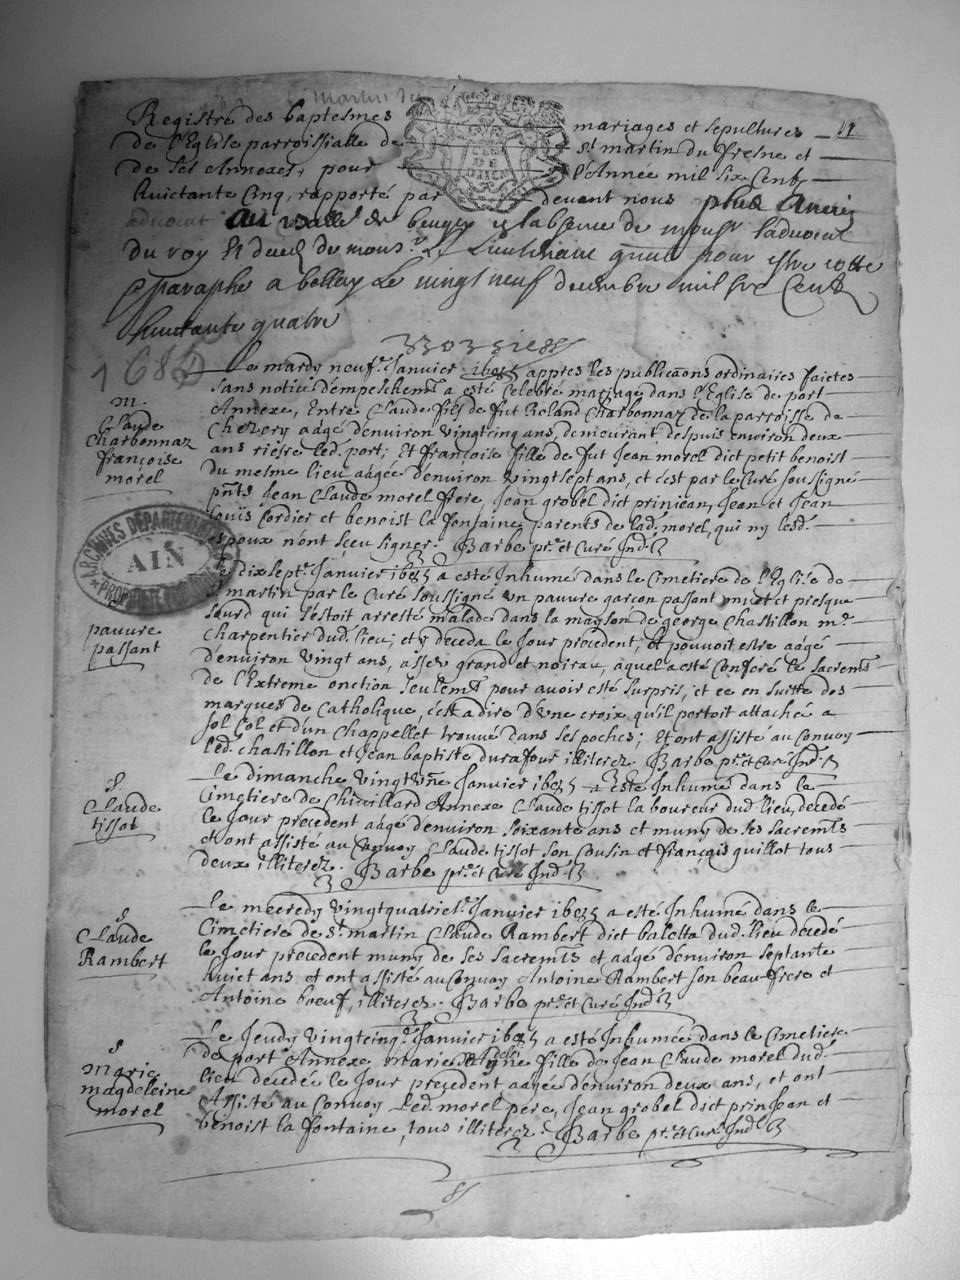 St martin du
Registre des baptesmes mariages et sepultures
de l'Eglise parroissialle de St martin du fresne et
de ses Annexes, pour l'Année mil six Cent
huictante Cinq, rapporté par devant nous plus Ancien
advocat au Balle de beugey en l'absence de monsr l'advocat
du roy Et de de monsr Le Lieutenant pour estre cotte
paraphe a belley Le vingt neuf decembre mil six Cent
huictante quatre
1685
Le mardy neufe Janvier 1685 appres les publicaons ordinaires faictes
sans notice d'empeschemt a esté Celebré mariage dans l'Eglise de port
Annexe, Entre Claude fils de fut Roland Charbonnaz de la parroisse de
Chezery aagé d'environ vingtcinq ans, demeurant despuis environ deux
ans riere led. port; Et françoise fille de fut Jean morel dict petit benoist
du mesme lieu aagée d'environ vingtsept ans, et c'est par le Curé soussigné
pnts Jean Claude morel frere, Jean grobel dict prinjean, Jean et Jean
Louis Cordier et benoist la fontaine parents de lad. morel, qui ny lesd.
espoux n'ont sçeu signer. Barbe ptre et Curé Ind.
m.
Claude
Charbonnaz
françoise
morel
ARCHIVES DÉPARTEMENTALES
AIN
PROPRIÉTÉ PUBLIQUE
Le dix septe Janvier 1685 a esté Inhumé dans le Cimetiere de l'Eglise de
St martin par le Curé soussigné un pauvre garçon passant muet et presque
sourd qui s'estoit arresté malade dans la mayson de george Chastillon me
Charpentier dud. lieu; et y deceda le Jour precedent; Et pouvoit estre aagé
d'environ vingt ans, assez grand et noirau, aquel a esté Conferé le sacremt
de l'Extreme onction seulemt pour avoir esté surpris, et ce en suitte des
marques de Catholique, c'est a dire d'une croix qu'il portoit attachée a
sol Col et d'un Chappellet trouvé dans ses poches; Et ont assisté au Convoy
led. Chastillon et Jean baptiste durafour illiterez Barbe ptre et Curé Ind.
pauvre
passant
Le dimanche vingt une Janvier 1685 a esté Inhumé dans le
Cimetiere de Chevillard Annexe Claude tissot laboureur dud. lieu, decedé
le Jour precedent aagé d'environ soixante ans et muny de ses sacremts
et ont assisté au Convoy Claude tissot son Cousin et françois quillot tous
deux illiterez. Barbe ptre et Curé Ind.
S
Claude
tissot
Le mecredy vingtquatriese Janvier 1685 a esté Inhumé dans le
Cimetiere de St martin Claude Rambert dict balotta dud. lieu decedé
le Jour precedent muny de ses sacremts et aagé d'environ septante
huict ans, et ont assisté au Convoy Antoine Rambert son beau frere et
Antoine boeuf, illiterez. Barbe ptre et Curé Ind.
S
Claude
Rambert
Le Jeudy vingtcinqe Janvier 1685 a esté Inhumée dans le Cimetiere
de port Annexe marie fille de Jean Claude morel dud.
lieu decedée le Jour precedent aagée d'environ deux ans, et ont
Assisté au Convoy led. morel pere, Jean grobel dict prinjean et
benoist la fontaine, tous illiterez. Barbe ptre et Curé Ind.
S
Marie
magdeleine
morel